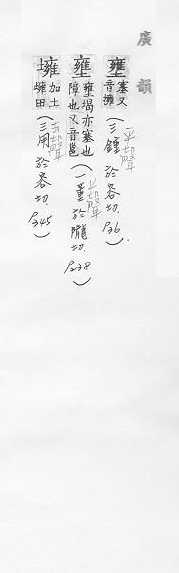 廣韻
壅 塞又音擁(三鍾於容切.P.36).平聲
壅 壅堨亦塞也障也又音邕(一董於隴切.P.238)上聲
壅 加土壅田(三用於容切.P.345)去聲